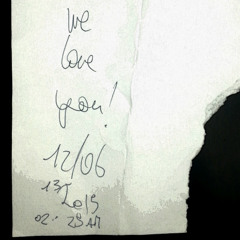 we
love
you!
12/06
2013
02:23 AM